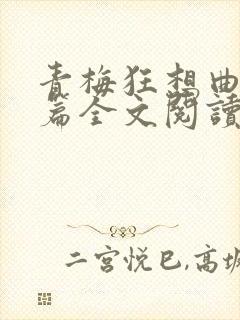 青梅狂想曲
篇全文閱讀
二宫悦巳,高坂